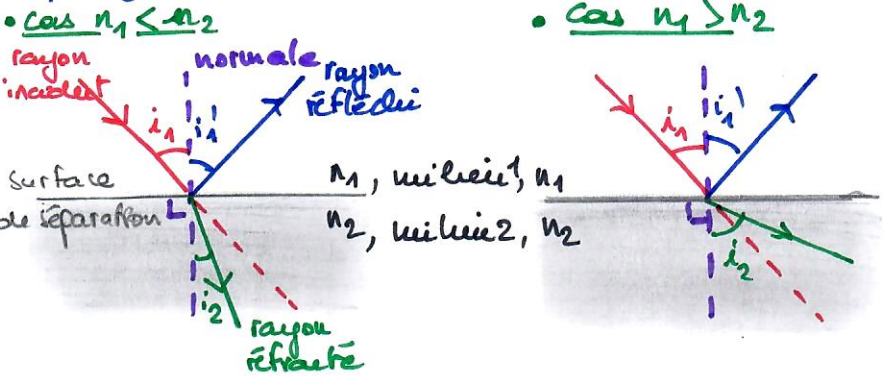 • cas n₁ < n₂
rayon
incident
normale
rayon
réfléchi
i₁
i₁'
surface
de séparation
n₁, milieu 1, n₁
n₂, milieu 2, n₂
i₂
rayon
réfracté
• cas n₁ > n₂
i₁
i₁'
i₂